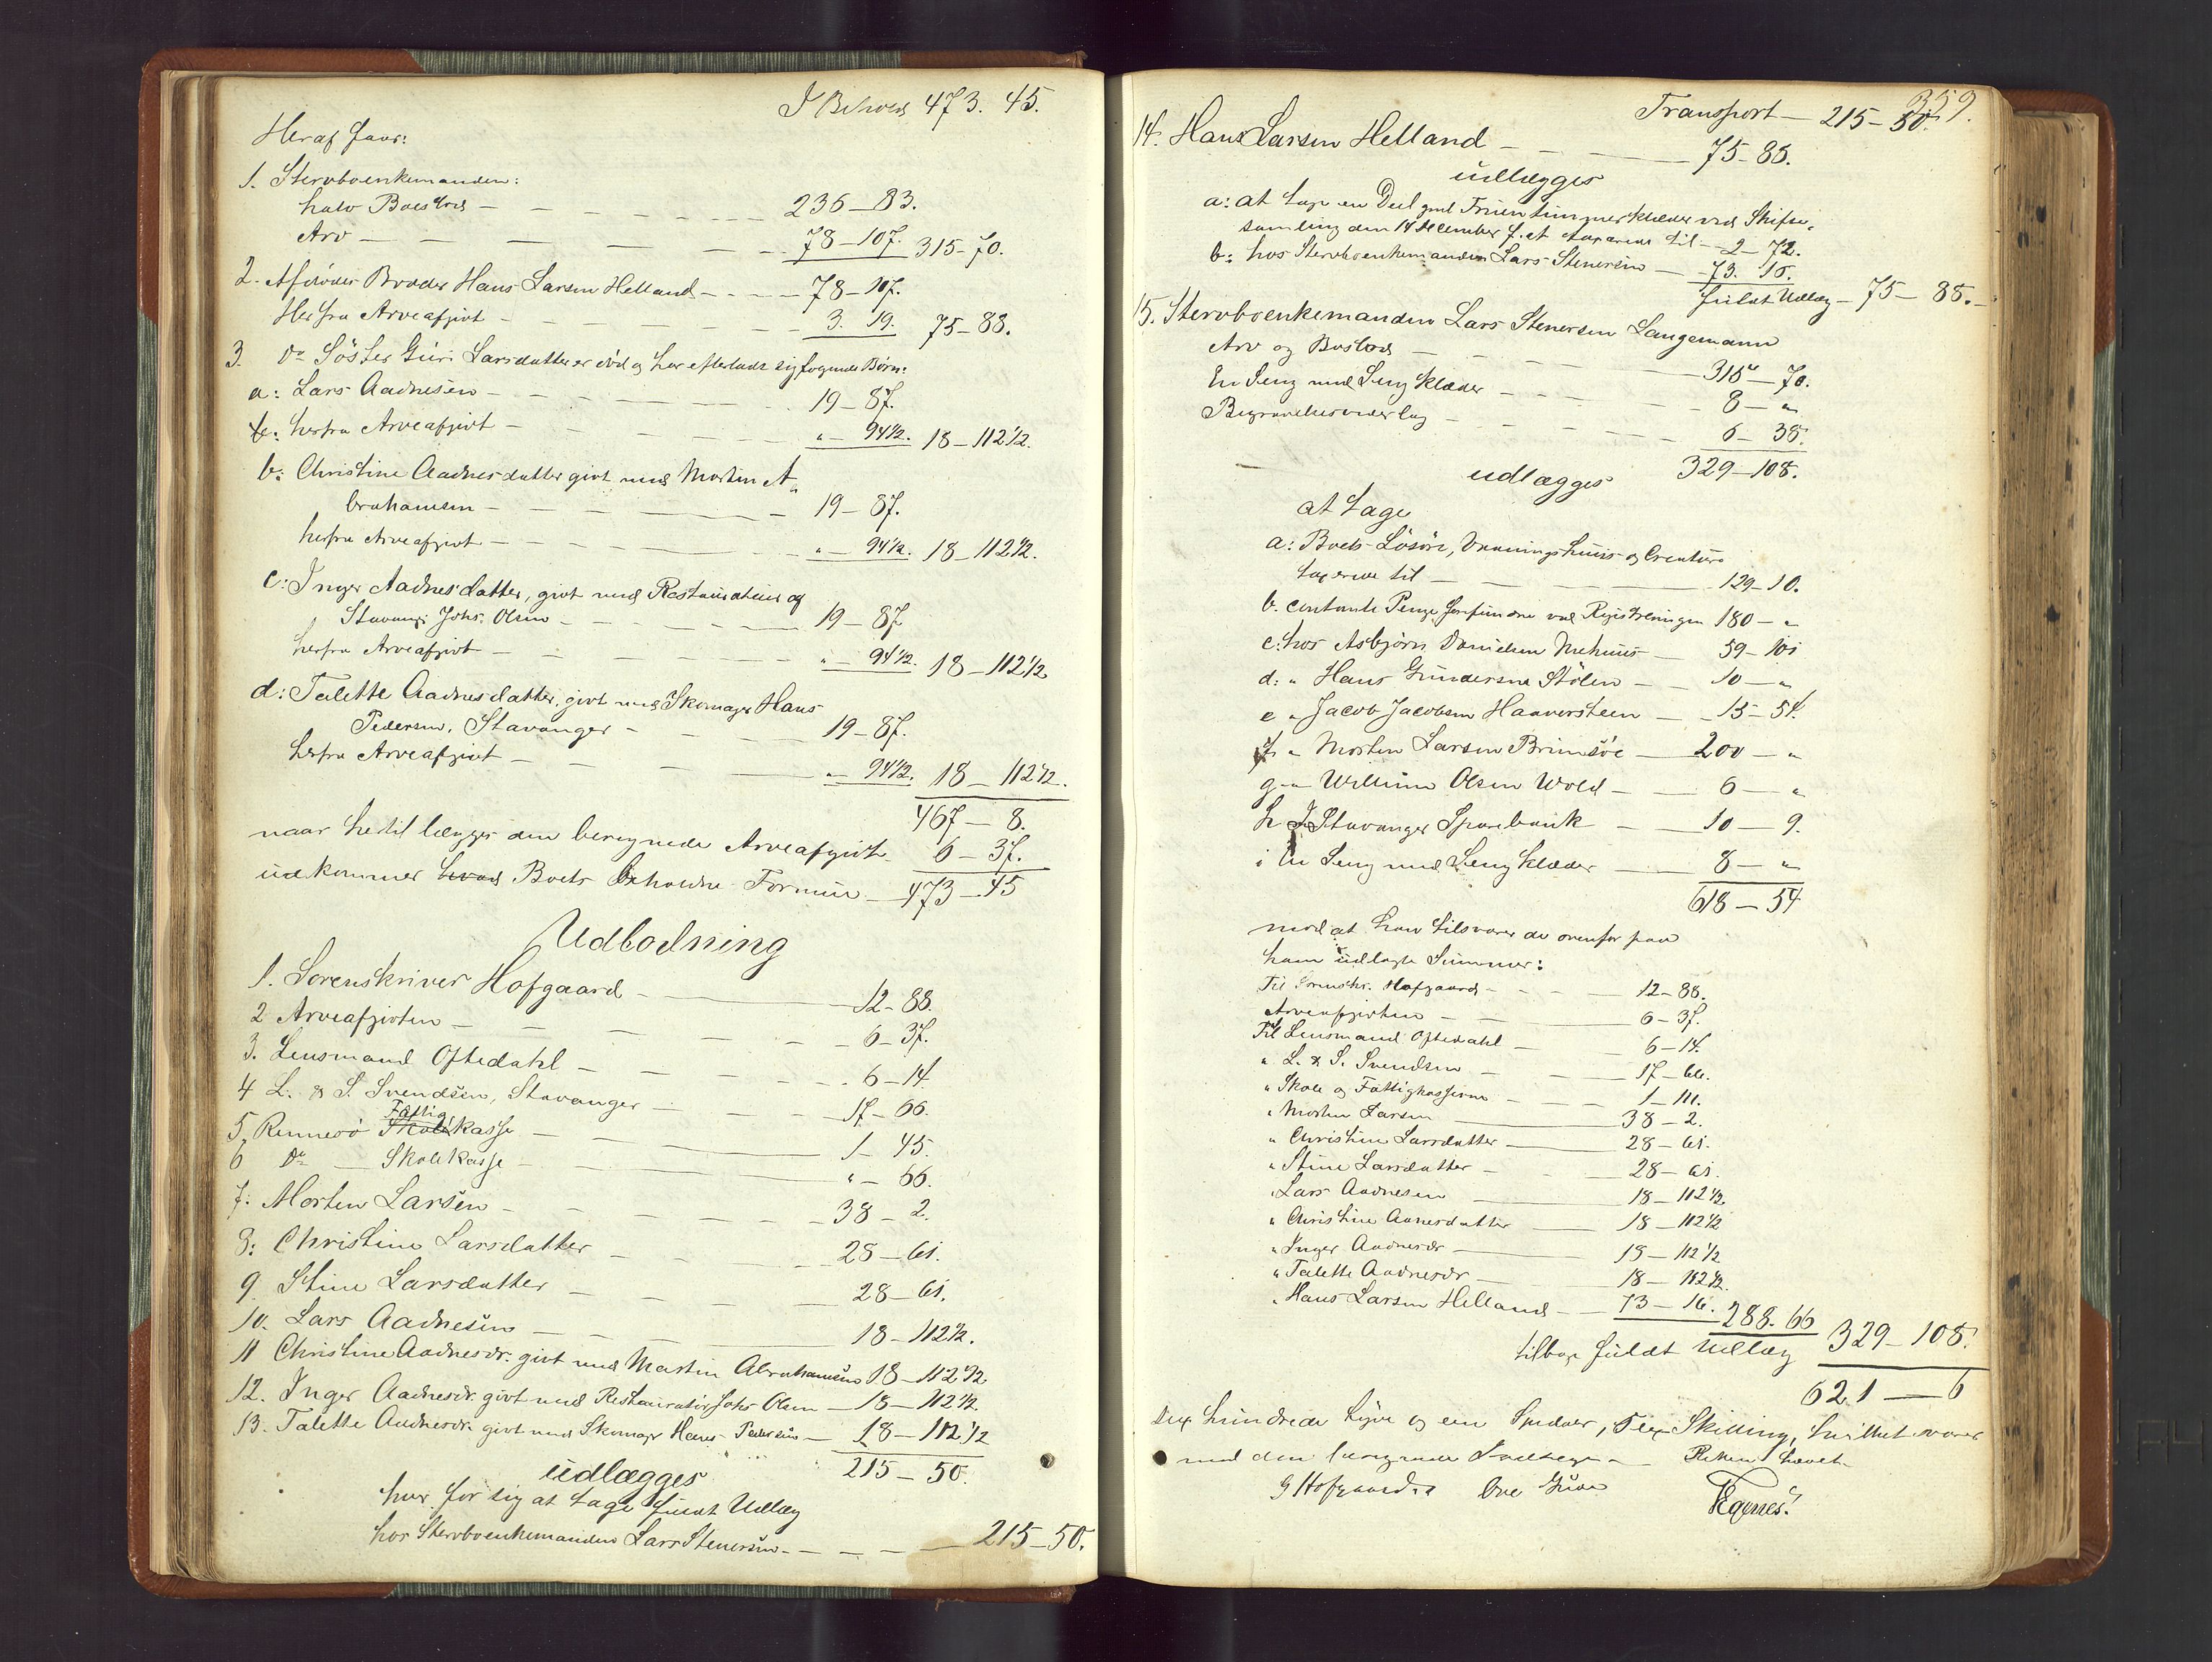 I Behold 473. 45.
Heraf faar:
1. Stervboenkemanden:
halv Boeslod — 236 — 83.
Arv — 78 — 107. 315 — 70.
2. Afdødes Broder Hans Larsen Helland — 78 — 107.
Herfra Arveafgivt — 3. 19. 75 — 88.
3. Do Söster Guri Larsdatter er død og har efterladt sig følgende Børn:
a: Lars Aadnesen — 19 — 87.
herfra Arveafgivt — " — 94 1/2. 18 — 112 1/2.
b: Christine Aadnesdatter givt med Morten A
brahamsen — 19 — 87.
herfra Arveafgivt — " — 94 1/2. 18 — 112 1/2.
c: Inger Aadnesdatter, givt med Restauratør og
Stavang: Johs. Olsen — 19 — 87
herfra Arveafgivt — " — 94 1/2. 18 — 112 1/2
d: Talette Aadnesdatter, givt med Skomager Hans
Pedersen, Stavanger — 19 — 87.
herfra Arveafgivt — " — 94 1/2. 18 — 112 1/2.
467 — 8.
naar hertil lægges den beregnede Arveafgivt 6 — 37.
udkommer hvad Boets beholdne Formue — 473 — 45
Udlodning
1. Sorenskriver Hofgaard — 12 — 88.
2 Arveafgivten — 6 — 37.
3. Lensmand Oftedahl — 6 — 14.
4 L. & S. Svendsen, Stavanger — 17 — 66.
Fattig
5. Rennesö Skolekasse — 1 — 45.
6 Do — Skolekasse — " — 66.
7: Morten Larsen — 38 — 2.
8: Christine Larsdatter — 28 — 61.
9. Stine Larsdatter — 28 — 61.
10. Lars Aadnesen — 18 — 112 1/2.
11 Christine Aadnesdr. givt med Martin Abrahamsen 18 — 112 1/2
12. Inger Aadnesdr. givt med Restauratør Johs Olsen — 18 — 112 1/2.
13. Talette Aadnesdr. givt med Skomager Hans Pedersen — 18 — 112 1/2
215 — 50.
udlægges
hver for sig at tage fuldt Udlæg
hos Stervboenkemanden Lars Stenersen — 215 — 50.
359.
Transport — 215 — 50.
14. Hans Larsen Helland — 75 — 88.
udlægges
a: at tage en Deel gml Fruentimmerklæder ved Skifte-
samling den 14 December f. A. taxerede til — 2 — 72.
b: hos Stervboenkemanden Lars Stenersen — 73. 16.
fuldt Udlæg — 75 — 88.
15. Stervboenkemanden Lars Stenersen Langemann
Arv og Boslod — 315 — 70.
En Seng med Sengklæder — 8 — "
Begravelsesvederlag — 6 — 38.
329 — 108.
udlægges
at tage
a: Boets Løsöre, Vaaningshuus og Creature
taxerede til — 129 — 10.
b. contante Penge forefundne ved Registreringen 180 — "
c: hos Asbjørn Danielsen Mehuus — 59 — 101
d: " Hans Gundersen Stölen — 10 — "
e " Jacob Jacobsen Haaversteen — 15 — 54.
f " Morten Larsen Brimsöe — 200 — "
g " Willum Olsen Wold — 6 — "
h I Stavanger Sparebank — 10 — 9.
i En Seng med Sengklæder — 8 — "
618 — 54
mod at han tilsvarer de ovenfor paa
ham udlagte Summer:
Til Sorenskr. Hofgaard — 12 — 88.
Arveafgivten — 6 — 37.
Til Lensmand Oftedahl — 6 — 14.
" L. & S. Svendsen — 17 — 66.
" Skole og Fattigkasserne — 1 — 111.
" Morten Larsen — 38 — 2.
" Christine Larsdatter — 28 — 61.
" Stine Larsdatter — 28 — 61.
" Lars Aadnesen — 18 — 112 1/2.
" Christine Aanesdatter — 18 — 112 1/2
" Inger Aadnesdr — 18 — 112 1/2
" Talette Aadnesdr — 18 — 112 1/2.
" Hans Larsen Helland — 73 — 16. 288. 66
tilbage fuldt Udlæg 329 — 108.
621 — 6
Sex hundrede tyve og een Spedaler, sex Skilling, hvilket svarer
med den beregnede Indtægt — Retten hævet
G Hofgaard Ove Egenes.